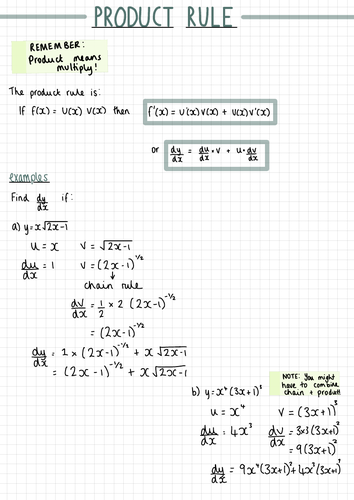 PRODUCT RULE
REMEMBER:
Product means
multiply!
The product rule is:
If f(x) = U(x) V(x) then f'(x) = U'(x)V(x) + U(x)V'(x)
or dy/dx = du/dx · v + u · dv/dx
examples
Find dy/dx if:
a) y = x√2x-1
u = x v = √2x-1
du/dx = 1 v = (2x-1)^-1/2
↓
chain rule
dv/dx = 1/2 × 2 (2x-1)^-1/2
= (2x-1)^-1/2
dy/dx = 1 × (2x-1)^-1/2 + x √2x-1
= (2x-1)^-1/2 + x √2x-1
NOTE: You might
have to combine
chain + product!
b) y = x⁴ (3x+1)³
u = x⁴ v = (3x+1)³
du/dx = 4x³ dv/dx = 3×3(3x+1)²
= 9(3x+1)²
dy/dx = 9x⁴(3x+1)² + 4x³(3x+1)³